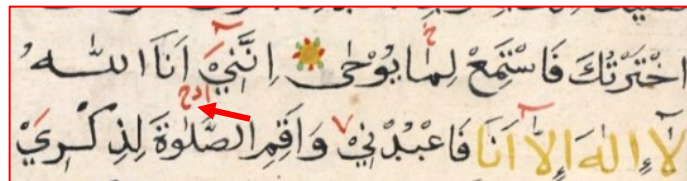 اخْتَرْتُكَ فَاسْتَمِعْ لِمَا يُوْحٰى اِنَّنِيْٓ اَنَا اللّٰهُ
لَآ اِلٰهَ اِلَّآ اَنَا فَاعْبُدْنِيْ وَاَقِمِ الصَّلٰوةَ لِذِكْرِيْ